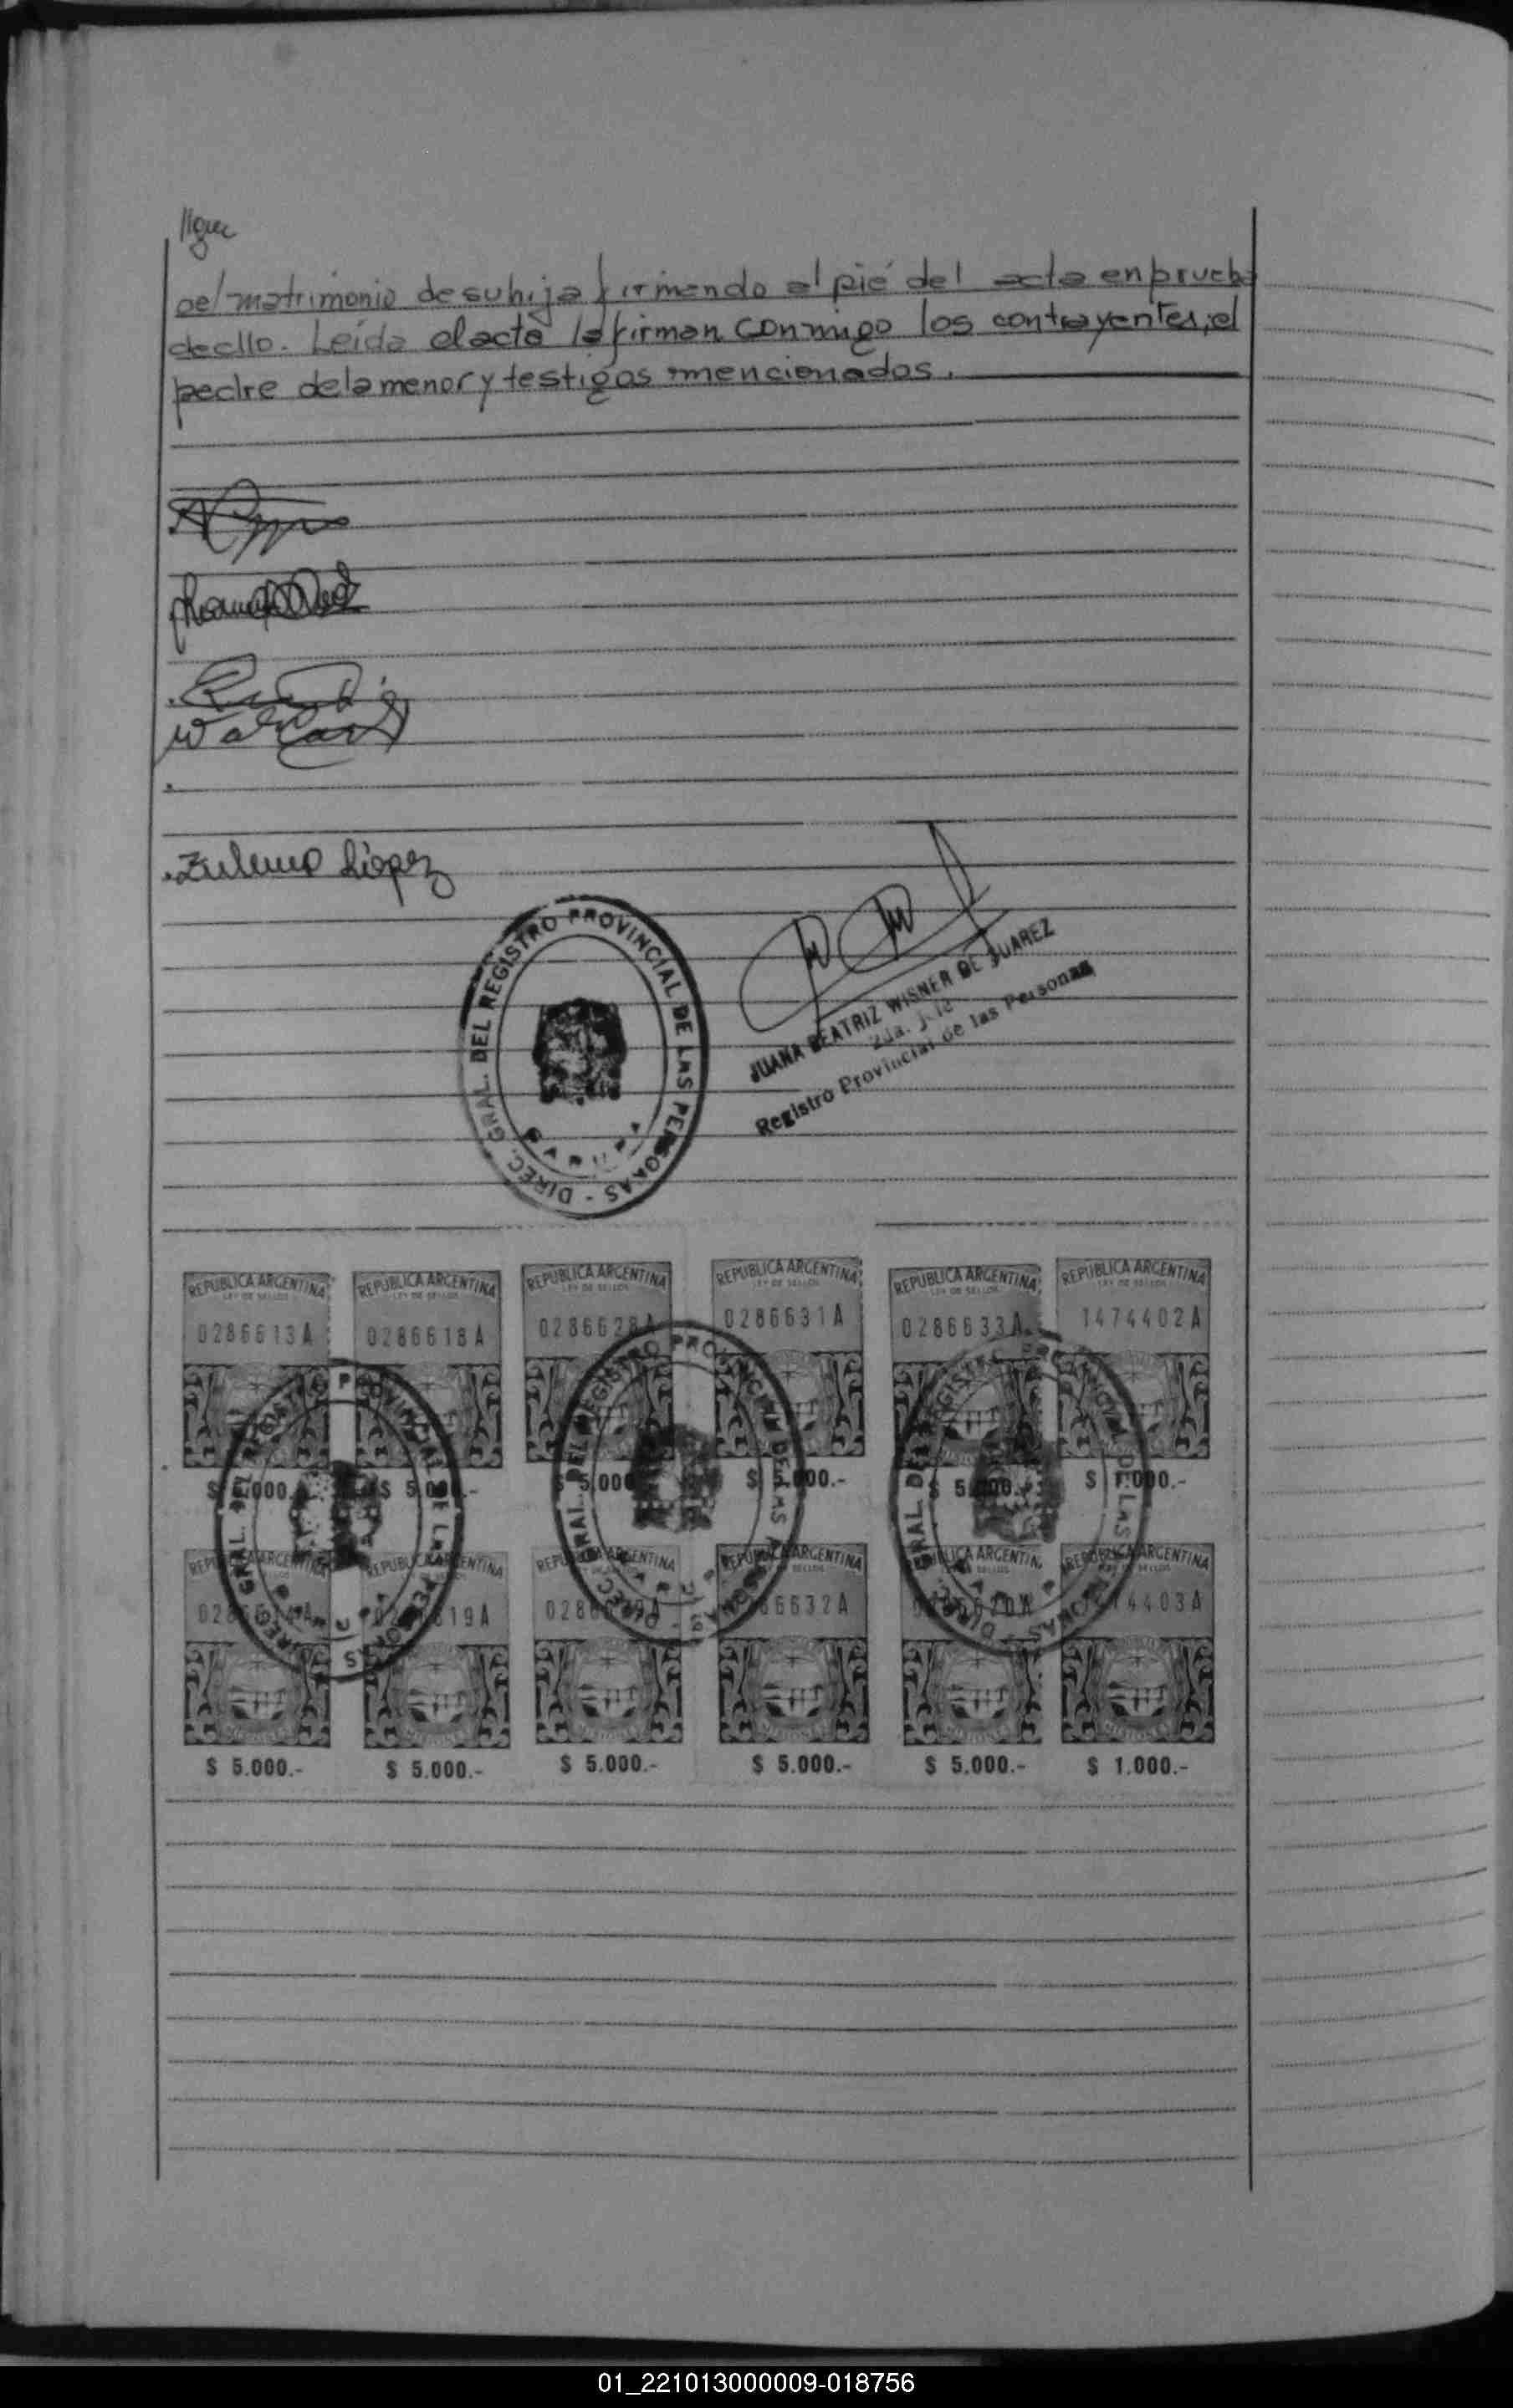 oe/matrimonio de su hija firmando al pié del acta en prueba
de ello. Leída el acta la firman conmigo los contrayentes, el
padre de la menor y testigos mencionados.
Zulema López
DIREC. GRAL. DEL REGISTRO PROVINCIAL DE LAS PERSONAS
JUANA BEATRIZ WISNER DE JUAREZ
2da. Jefe
Registro Provincial de las Personas
REPUBLICA ARGENTINA REPUBLICA ARGENTINA REPUBLICA ARGENTINA REPUBLICA ARGENTINA REPUBLICA ARGENTINA REPUBLICA ARGENTINA
LEY DE SELLOS LEY DE SELLOS LEY DE SELLOS LEY DE SELLOS LEY DE SELLOS LEY DE SELLOS
0286613A 0286618A 0286628A 0286631A 0286633A 1474402A
$ 5.000.- $ 5.000.- $ 5.000 $ 5.000.- $ 5.000.- $ 1.000.-
REPUBLICA ARGENTINA REPUBLICA ARGENTINA REPUBLICA ARGENTINA REPUBLICA ARGENTINA REPUBLICA ARGENTINA REPUBLICA ARGENTINA
$ 5.000.- $ 5.000.- $ 5.000.- $ 5.000.- $ 5.000.- $ 1.000.-
01_221013000009-018756